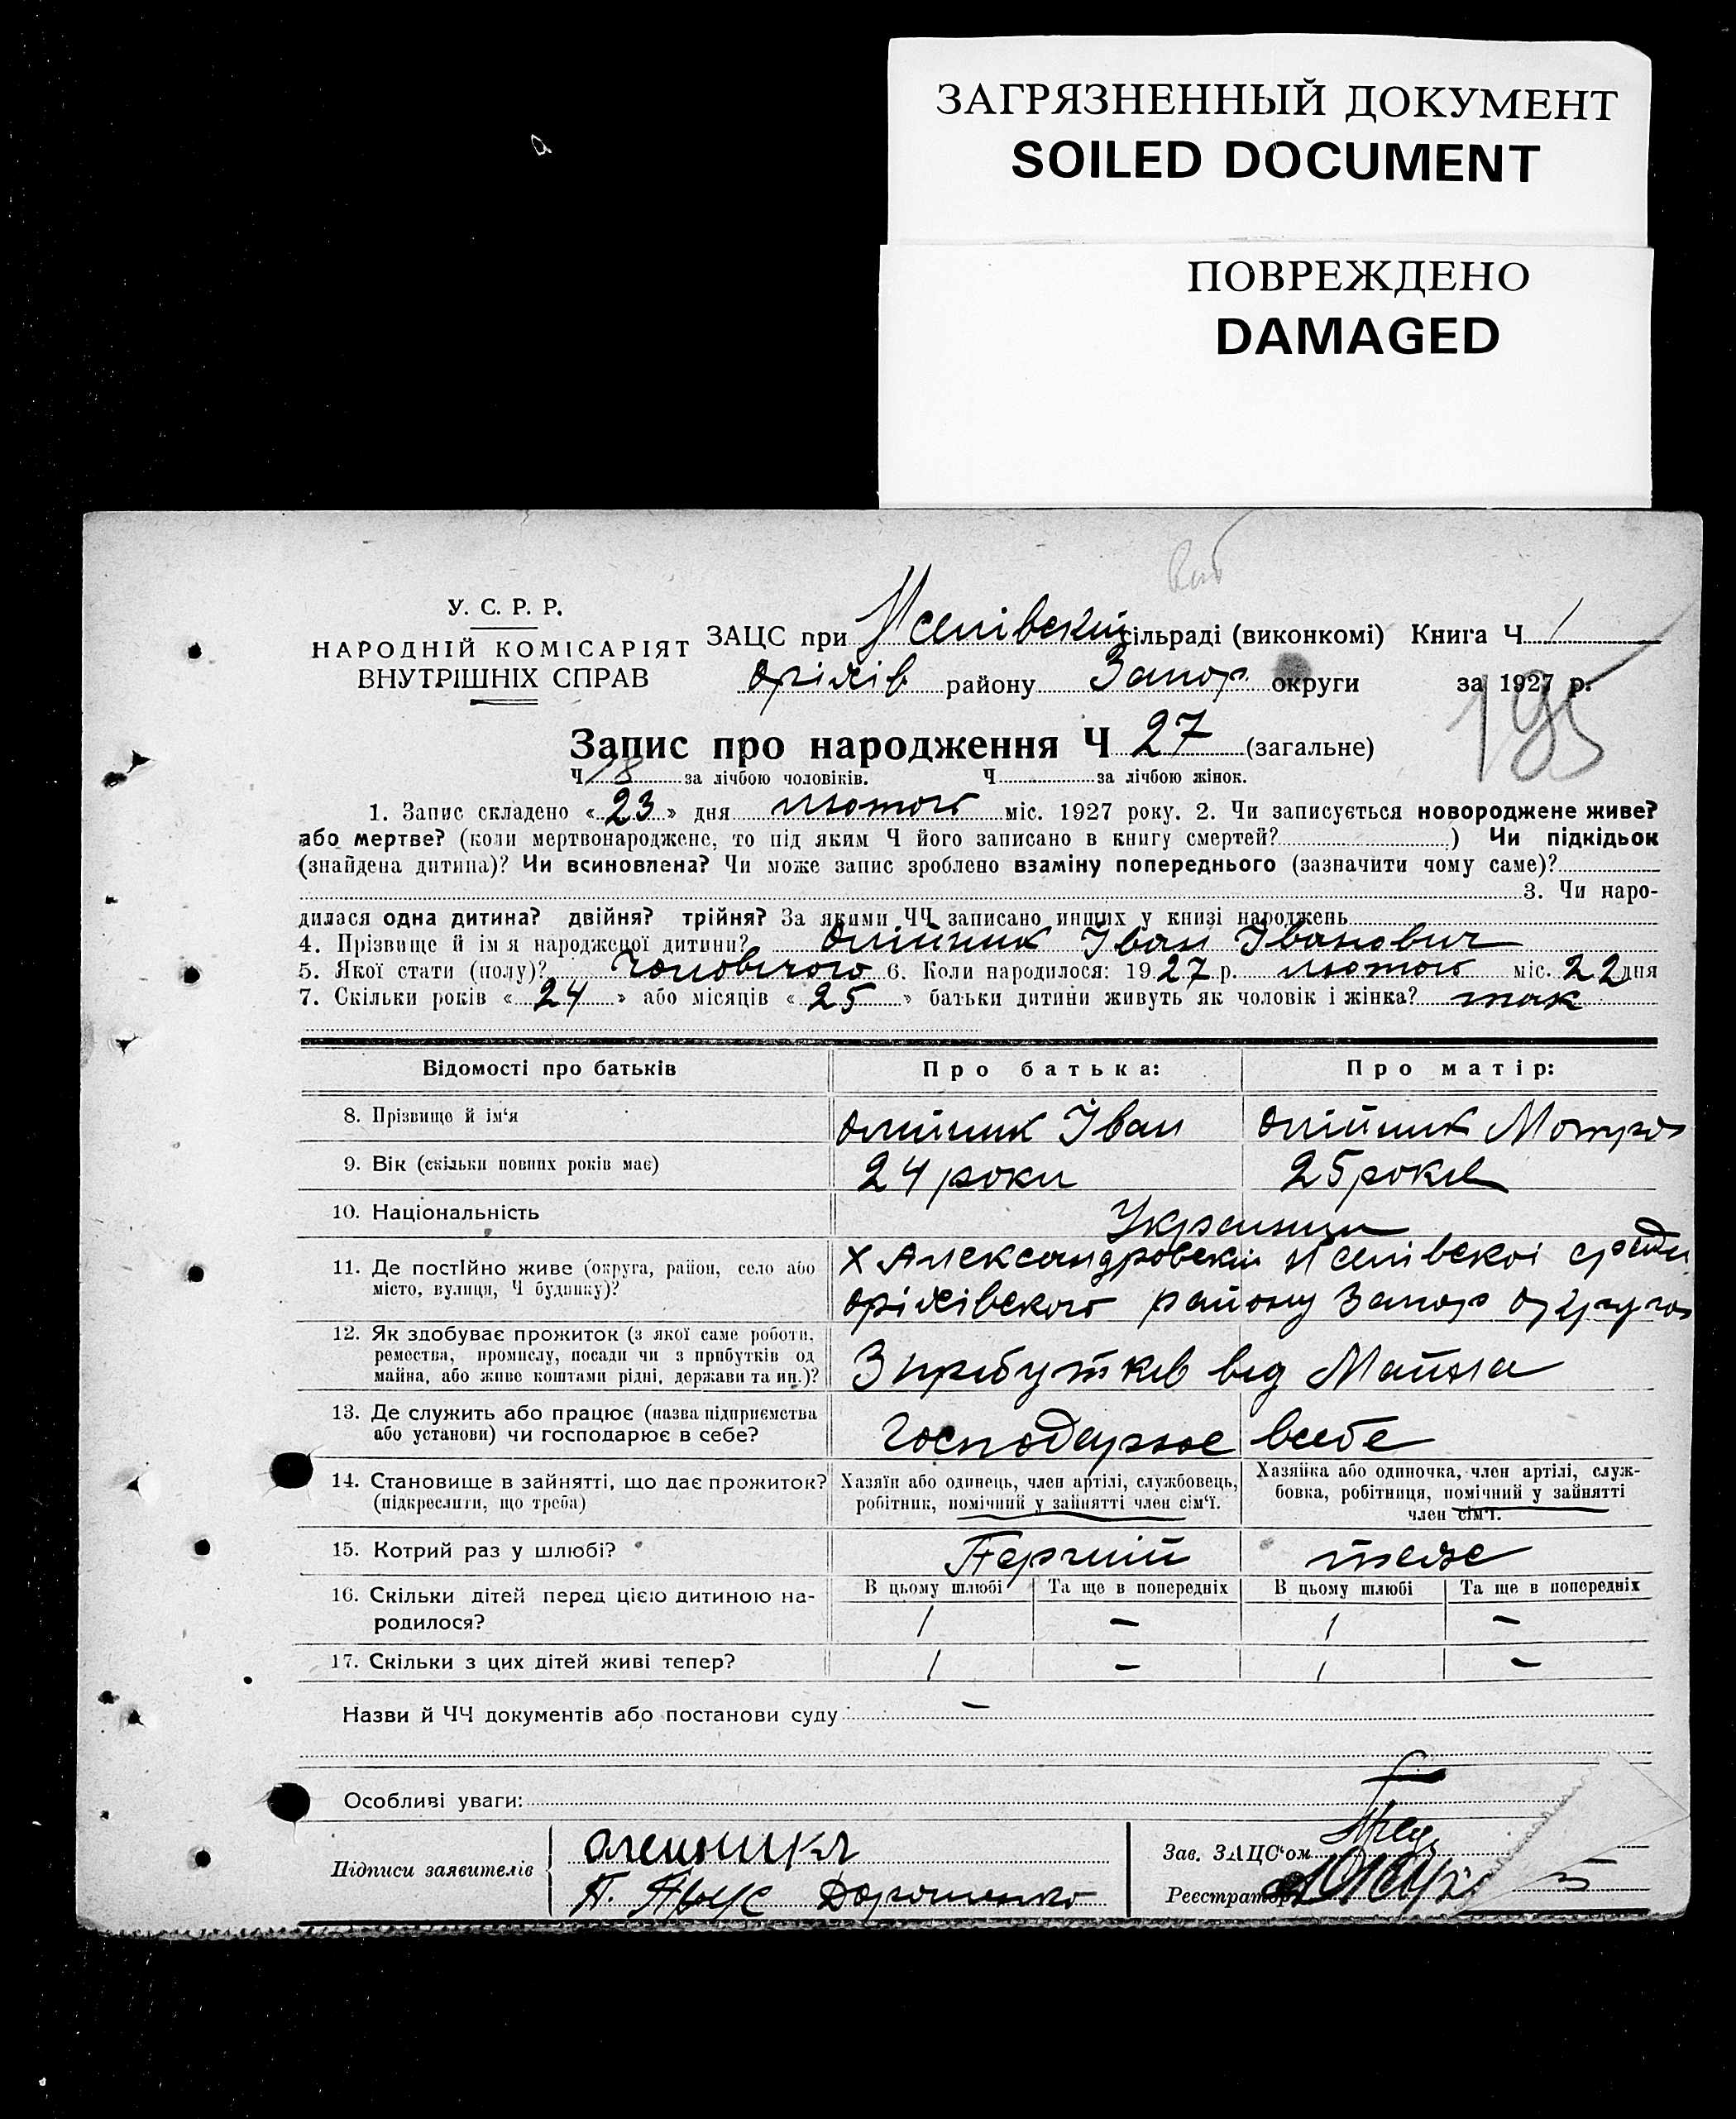 ЗАГРЯЗНЕННЫЙ ДОКУМЕНТ
SOILED DOCUMENT
ПОВРЕЖДЕНО
DAMAGED
У. С. Р. Р.
НАРОДНІЙ КОМІСАРІЯТ
ВНУТРІШНІХ СПРАВ
ЗАЦС при сільраді (виконкомі) Книга Ч 1
Оріхів району Запор округи за 1927 р.
195
Запис про народження Ч 27 (загальне)
Ч 18 за лічбою чоловіків. Ч за лічбою жінок.
1. Запис складено «23» дня лютого міс. 1927 року. 2. Чи записується новороджене живе?
або мертве? (коли мертвонароджене, то під яким Ч його записано в книгу смертей? ) Чи підкідьок
(знайдена дитина)? Чи всиновлена? Чи може запис зроблено взаміну попереднього (зазначити чому саме)?
3. Чи наро-
дилася одна дитина? двійня? трійня? За якими ЧЧ записано инших у книзі народжень
4. Прізвище й ім я народженої дитини? Олійник Іван Іванович
5. Якої стати (полу)? Чоловічого 6. Коли народилося: 1927 р. лютого міс. 22 дня
7. Скільки років «24» або місяців «25» батьки дитини живуть як чоловік і жінка? так
Відомості про батьків Про батька: Про матір:
8. Прізвище й ім'я Олійник Іван Олійник Мотря
9. Вік (скільки повних років має) 24 роки 25 років
10. Національність Українці
11. Де постІйно живе (округа, район, село або
місто, вулиця, Ч будинку)?
Х Александровський сради
Оріхівского району Запор округа
12. Як здобуває прожиток (з якої саме роботи,
ремества, промислу, посади чи з прибутків од
майна, або живе коштами рідні, держави та ин.)?
З прібутків від Майна
13. Де служить або працює (назва підприємства
або установи) чи господарює в себе?
Господарює всебе
14. Становище в зайнятті, що дає прожиток?
(підкреслити, що треба)
Хазяїн або одинець, член артілі, службовець,
робітник, помічний у зайнятті член сім'ї.
Хазяйка або одиночка, член артілі, служ-
бовка, робітниця, помічний у зайнятті
член сім'ї.
15. Котрий раз у шлюбі? Перший теже
16. Скільки дітей перед цією дитиною на-
родилося?
В цьому шлюбі Та ще в попередніх В цьому шлюбі Та ще в попередніх
1 – 1 –
17. Скільки з цих дітей живі тепер? 1 – 1 –
Назви й ЧЧ документів або постанови суду –
Особливі уваги:
Підписи заявителів
П. Дорошенко
Зав. ЗАЦС'ом
Реєстратор